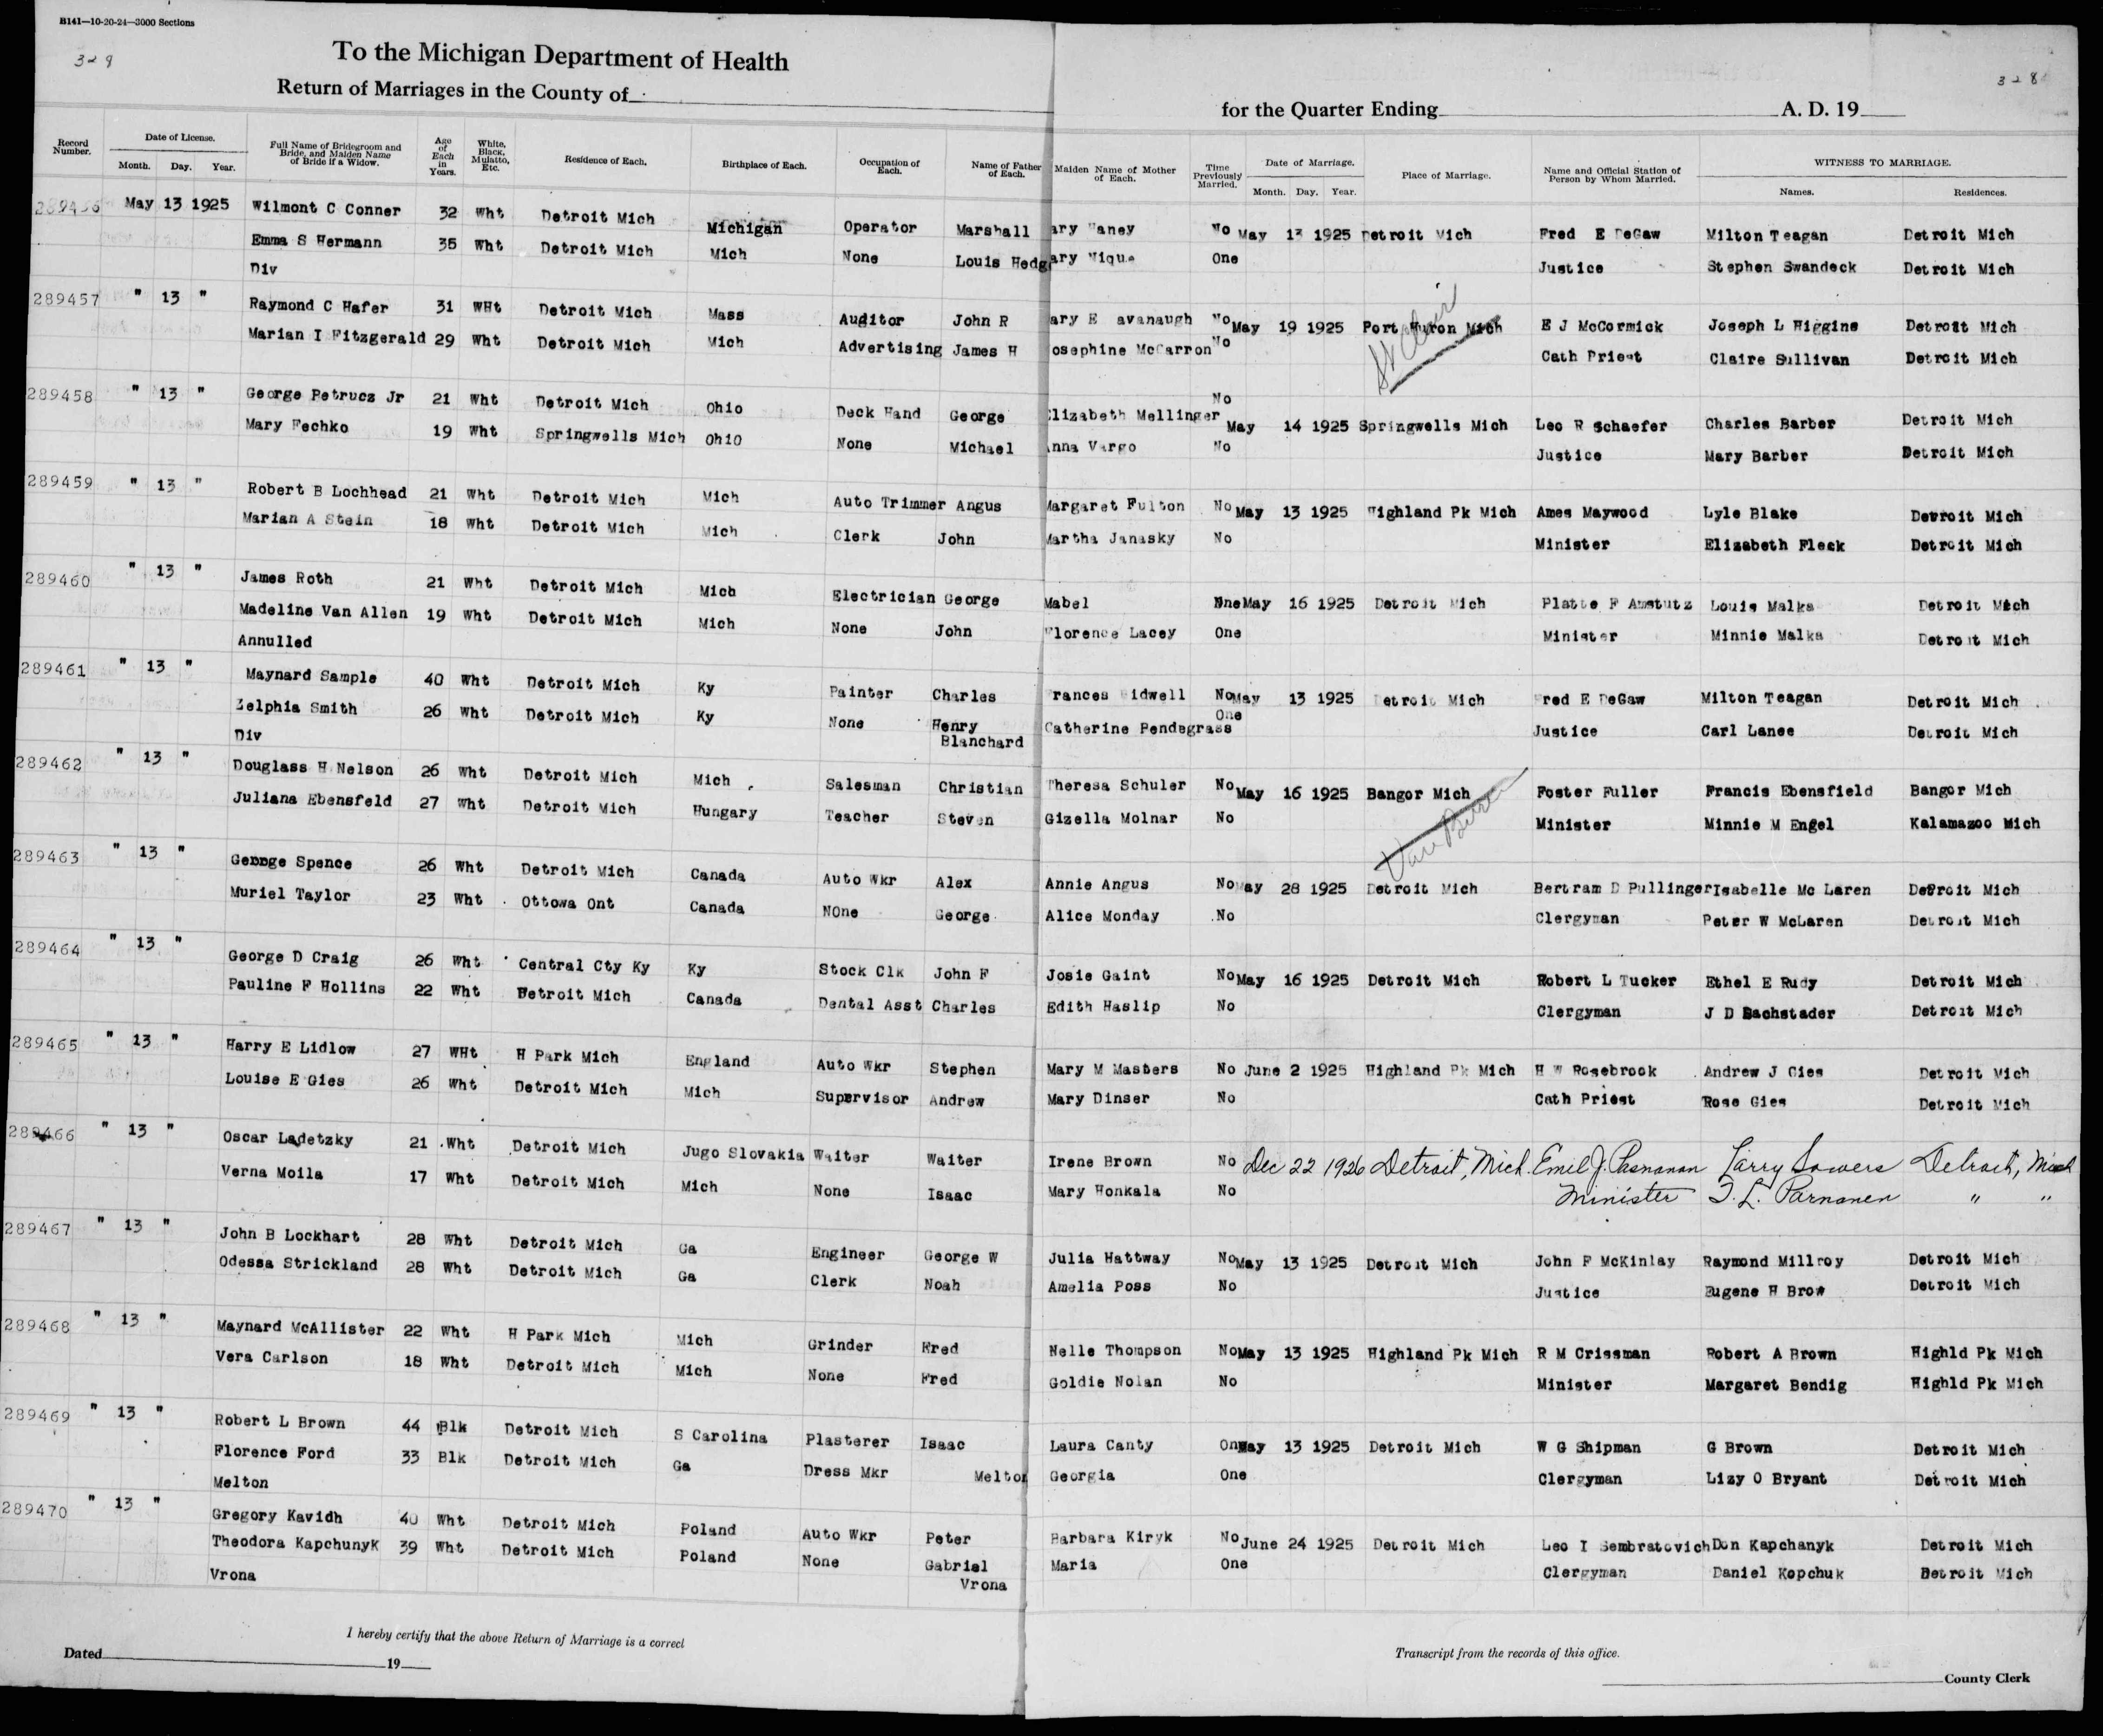 B141—10-20-24—3000 Sections
329
328
To the Michigan Department of Health
Return of Marriages in the County of
for the Quarter Ending A. D. 19
Record Number. Date of License. Month. Day. Year. Full Name of Bridegroom and Bride, and Maiden Name of Bride if a Widow. Age of Each in Years. White, Black, Mulatto, Etc. Residence of Each. Birthplace of Each. Occupation of Each. Name of Father of Each. Maiden Name of Mother of Each. Time Previously Married. Date of Marriage. Month. Day. Year. Place of Marriage. Name and Official Station of Person by Whom Married. WITNESS TO MARRIAGE. Names. Residences.
289456 May 13 1925 Wilmont C Conner 32 Wht Detroit Mich Michigan Operator Marshall ary No May 13 1925 Detroit Mich Fred E DeGaw Milton Teagan Detroit Mich
Emma S Hermann 35 Wht Detroit Mich Mich None Louis Hedg ary One Justice Stephen Swandeck Detroit Mich
Div
289457 " 13 " Raymond C Hafer 31 WHt Detroit Mich Mass Auditor John R ary E avanaugh No May 19 1925 Port Huron Mich E J McCormick Joseph L Higgins Detroit Mich
St Clair
Marian I Fitzgerald 29 Wht Detroit Mich Mich Advertising James H osephine McCarron No Cath Priest Claire Sullivan Detroit Mich
289458 " 13 " George Petrucz Jr 21 Wht Detroit Mich Ohio Deck Hand George Elizabeth Mellinger No May 14 1925 Springwells Mich Leo R Schaefer Charles Barber Detroit Mich
Mary Fechko 19 Wht Springwells Mich Ohio None Michael Anna Vargo No Justice Mary Barber Detroit Mich
289459 " 13 " Robert B Lochhead 21 Wht Detroit Mich Mich Auto Trimmer Angus Margaret Fulton No May 13 1925 Highland Pk Mich Ames Maywood Lyle Blake Detroit Mich
Marian A Stein 18 Wht Detroit Mich Mich Clerk John Martha Janasky No Minister Elizabeth Fleck Detroit Mich
289460 " 13 " James Roth 21 Wht Detroit Mich Mich Electrician George Mabel One May 16 1925 Detroit Mich Platte F Amstutz Louis Malka Detroit Mich
Madeline Van Allen 19 Wht Detroit Mich Mich None John Florence Lacey One Minister Minnie Malka Detroit Mich
Annulled
289461 " 13 " Maynard Sample 40 Wht Detroit Mich Ky Painter Charles Frances Bidwell No May 13 1925 Detroit Mich Fred E DeGaw Milton Teagan Detroit Mich
Zelphia Smith 26 Wht Detroit Mich Ky None Henry Blanchard Catherine Pendegrass One Justice Carl Lanee Detroit Mich
Div
289462 " 13 " Douglass H Nelson 26 Wht Detroit Mich Mich Salesman Christian Theresa Schuler No May 16 1925 Bangor Mich Foster Fuller Francis Ebensfield Bangor Mich
Van Buren
Juliana Ebensfeld 27 Wht Detroit Mich Hungary Teacher Steven Gizella Molnar No Minister Minnie M Engel Kalamazoo Mich
289463 " 13 " George Spence 26 Wht Detroit Mich Canada Auto Wkr Alex Annie Angus No May 28 1925 Detroit Mich Bertram D Pullinger Isabelle Mc Laren Detroit Mich
Muriel Taylor 23 Wht Ottowa Ont Canada NOne George Alice Monday No Clergyman Peter W McLaren Detroit Mich
289464 " 13 " George D Craig 26 Wht Central Cty Ky Ky Stock Clk John F Josie Gaint No May 16 1925 Detroit Mich Robert L Tucker Ethel E Rudy Detroit Mich
Pauline F Hollins 22 Wht Detroit Mich Canada Dental Asst Charles Edith Haslip No Clergyman J D Bachstader Detroit Mich
289465 " 13 " Harry E Lidlow 27 WHt H Park Mich England Auto Wkr Stephen Mary M Masters No June 2 1925 Highland Pk Mich H W Rosebrook Andrew J Gies Detroit Mich
Louise E Gies 26 Wht Detroit Mich Mich Supervisor Andrew Mary Dinser No Cath Priest Rose Gies Detroit Mich
289466 " 13 " Oscar Ladetzky 21 Wht Detroit Mich Jugo Slovakia Waiter Waiter Irene Brown No Dec 22 1926 Detroit, Mich. Emil J. Larry Sowers Detroit, Mich
Verna Moila 17 Wht Detroit Mich Mich None Isaac Mary Honkala No Minister Parnanen " "
289467 " 13 " John B Lockhart 28 Wht Detroit Mich Ga Engineer George W Julia Hattway No May 13 1925 Detroit Mich John F McKinlay Raymond Millroy Detroit Mich
Odessa Strickland 28 Wht Detroit Mich Ga Clerk Noah Amelia Poss No Justice Eugene H Brow Detroit Mich
289468 " 13 " Maynard McAllister 22 Wht H Park Mich Mich Grinder Fred Nelle Thompson No May 13 1925 Highland Pk Mich R M Crissman Robert A Brown Highld Pk Mich
Vera Carlson 18 Wht Detroit Mich Mich None Fred Goldie Nolan No Minister Margaret Bendig Highld Pk Mich
289469 " 13 " Robert L Brown 44 Blk Detroit Mich S Carolina Plasterer Isaac Laura Canty One May 13 1925 Detroit Mich W G Shipman G Brown Detroit Mich
Florence Ford 33 Blk Detroit Mich Ga Dress Mkr Melton Georgia One Clergyman Lizy O Bryant Detroit Mich
Melton
289470 " 13 " Gregory Kavidh 40 Wht Detroit Mich Poland Auto Wkr Peter Barbara Kiryk No June 24 1925 Detroit Mich Leo I Sembratovich Don Kapchanyk Detroit Mich
Theodora KapchunyK 39 Wht Detroit Mich Poland None Gabriel Vrona Maria One Clergyman Daniel Kopchuk Detroit Mich
Vrona
I hereby certify that the above Return of Marriage is a correct
Transcript from the records of this office.
Dated 19
County Clerk